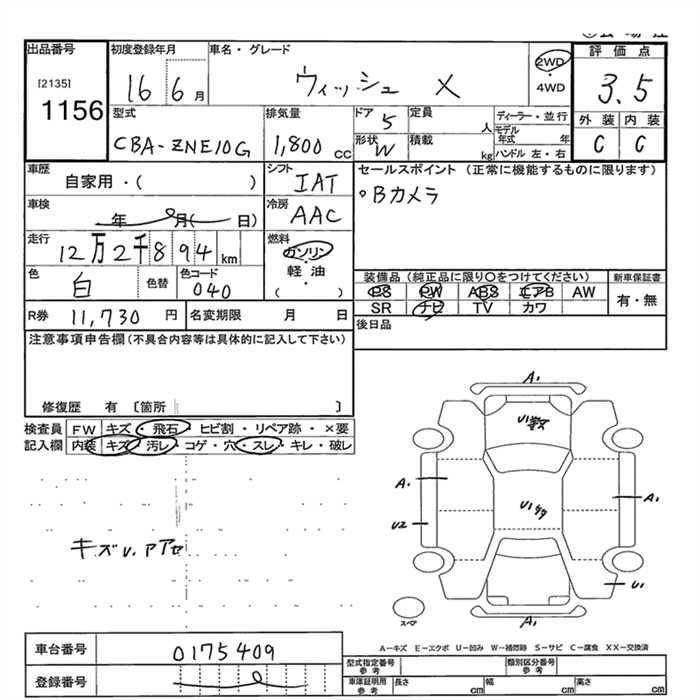 出品番号
[2135]
1156
初度登録年月
16 6月
車名・グレード
ウィッシュ X
2WD
・
4WD
評価点
3.5
外装 内装
C C
型式
CBA-ZNE10G
排気量
1,800 cc
ドア
5
形状
W
定員
人
積載
kg
ディーラー・並行
モデル年式 年
ハンドル 左・右
車歴
自家用・( )
シフト
IAT
セールスポイント (正常に機能するものに限ります)
Bカメラ
車検
年 月( 日)
冷房
AAC
走行
12万2千894km
燃料
ガソリン
・
軽油
・
( )
色
白
色替
色コード
040
装備品 (純正品に限り〇をつけてください)
PS PW ABS エアB AW
SR ナビ TV カワ
新車保証書
有・無
R券 11,730 円
名変期限 月 日
後日品
注意事項申告欄(不具合内容等は具体的に記入して下さい)
修復歴 有 〔箇所 〕
検査員記入欄
FW キズ・飛石・ヒビ割・リペア跡・×要
内装 キズ・汚レ・コゲ・穴・スレ・キレ・破レ
キズU.アアセ
A1
A1
U2
A1
U1
A1
スペア
A―キズ E―エクボ U―凹み W―補修跡 S―サビ C―腐食 XX―交換済
車台番号
0175409
登録番号
型式指定番号
参考
類別区分番号
参考
車庫証明用
参考
長さ cm
幅 cm
高さ cm